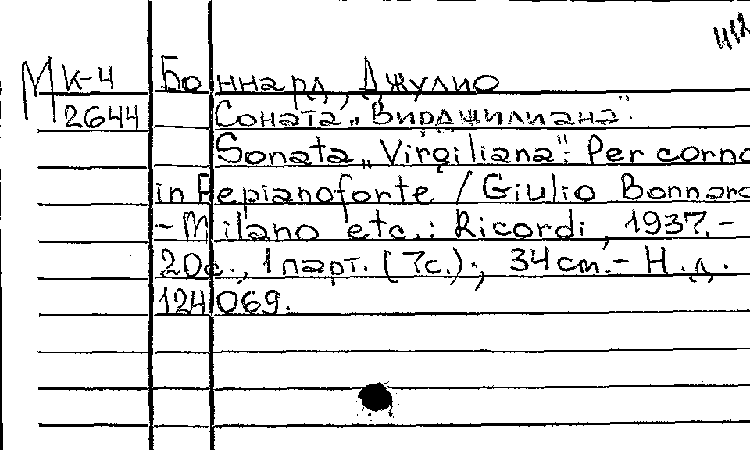 412
М к-4 Боннард, Джулио
2644 Соната „Вирджилиана".
Sonata „Virgiliana": Per corno
in F e pianoforte / Giulio Bonnard
- Milano etc.: Ricordi, 1937.-
20с., 1 парт. (7с.); 34 cm.- Н.д.
124069.